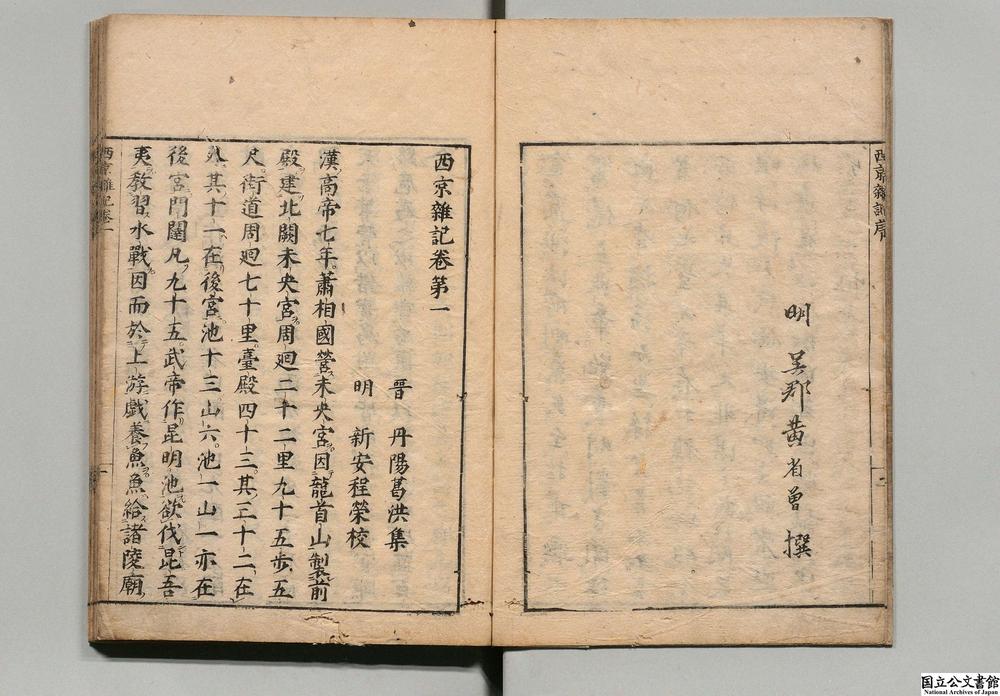 西京雜記序
明 吴郡黄省曾 撰
西京雜記卷第一
晋 丹陽葛洪集
明 新安程榮校
漢高帝七年蕭相國營未央宮因龍首山製前
殿建北闕未央宮周廻二十二里九十五步五
尺街道周廻七十里臺殿四十三其三十二在
外其十一在後宮池十三山六池一山一亦在
後宮門闥凡九十五武帝作昆明池欲伐昆吾
夷教習水戰因而於上游戲養魚魚給諸陵廟
西京雜記卷一
国立公文書館
National Archives of Japan